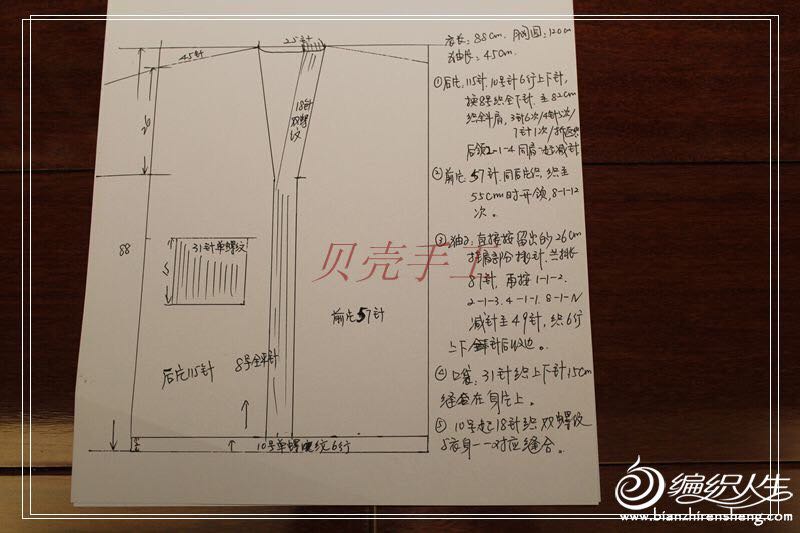 25针
45针
18针双螺纹
26
88
31针单螺纹
15
前片57针
后片115针
8号全平针
10号单螺纹6行
衣长:88cm. 胸围:120cm
袖长:45cm.
①后片,115针.10号针6行上下针,
换8号织全下针.至82cm
织斜肩,3针6次/4针5次/
7针1次/
后领2-1-4同肩一起减针
②前片57针.同后片织,织至
55cm时开领,8-1-12
次。
③袖子:直接按留出的26cm
挂肩部分挑针.共挑
87针,再按1-1-2.
2-1-3.4-1-1.8-1-N
减针至49针,织6行
上下针后收边。
④口袋:31针织上下针15cm
缝合在身片上。
⑤10号起18针织双螺纹
与衣身一一对应缝合。
贝壳手工
编织人生
www.bianzhirensheng.com